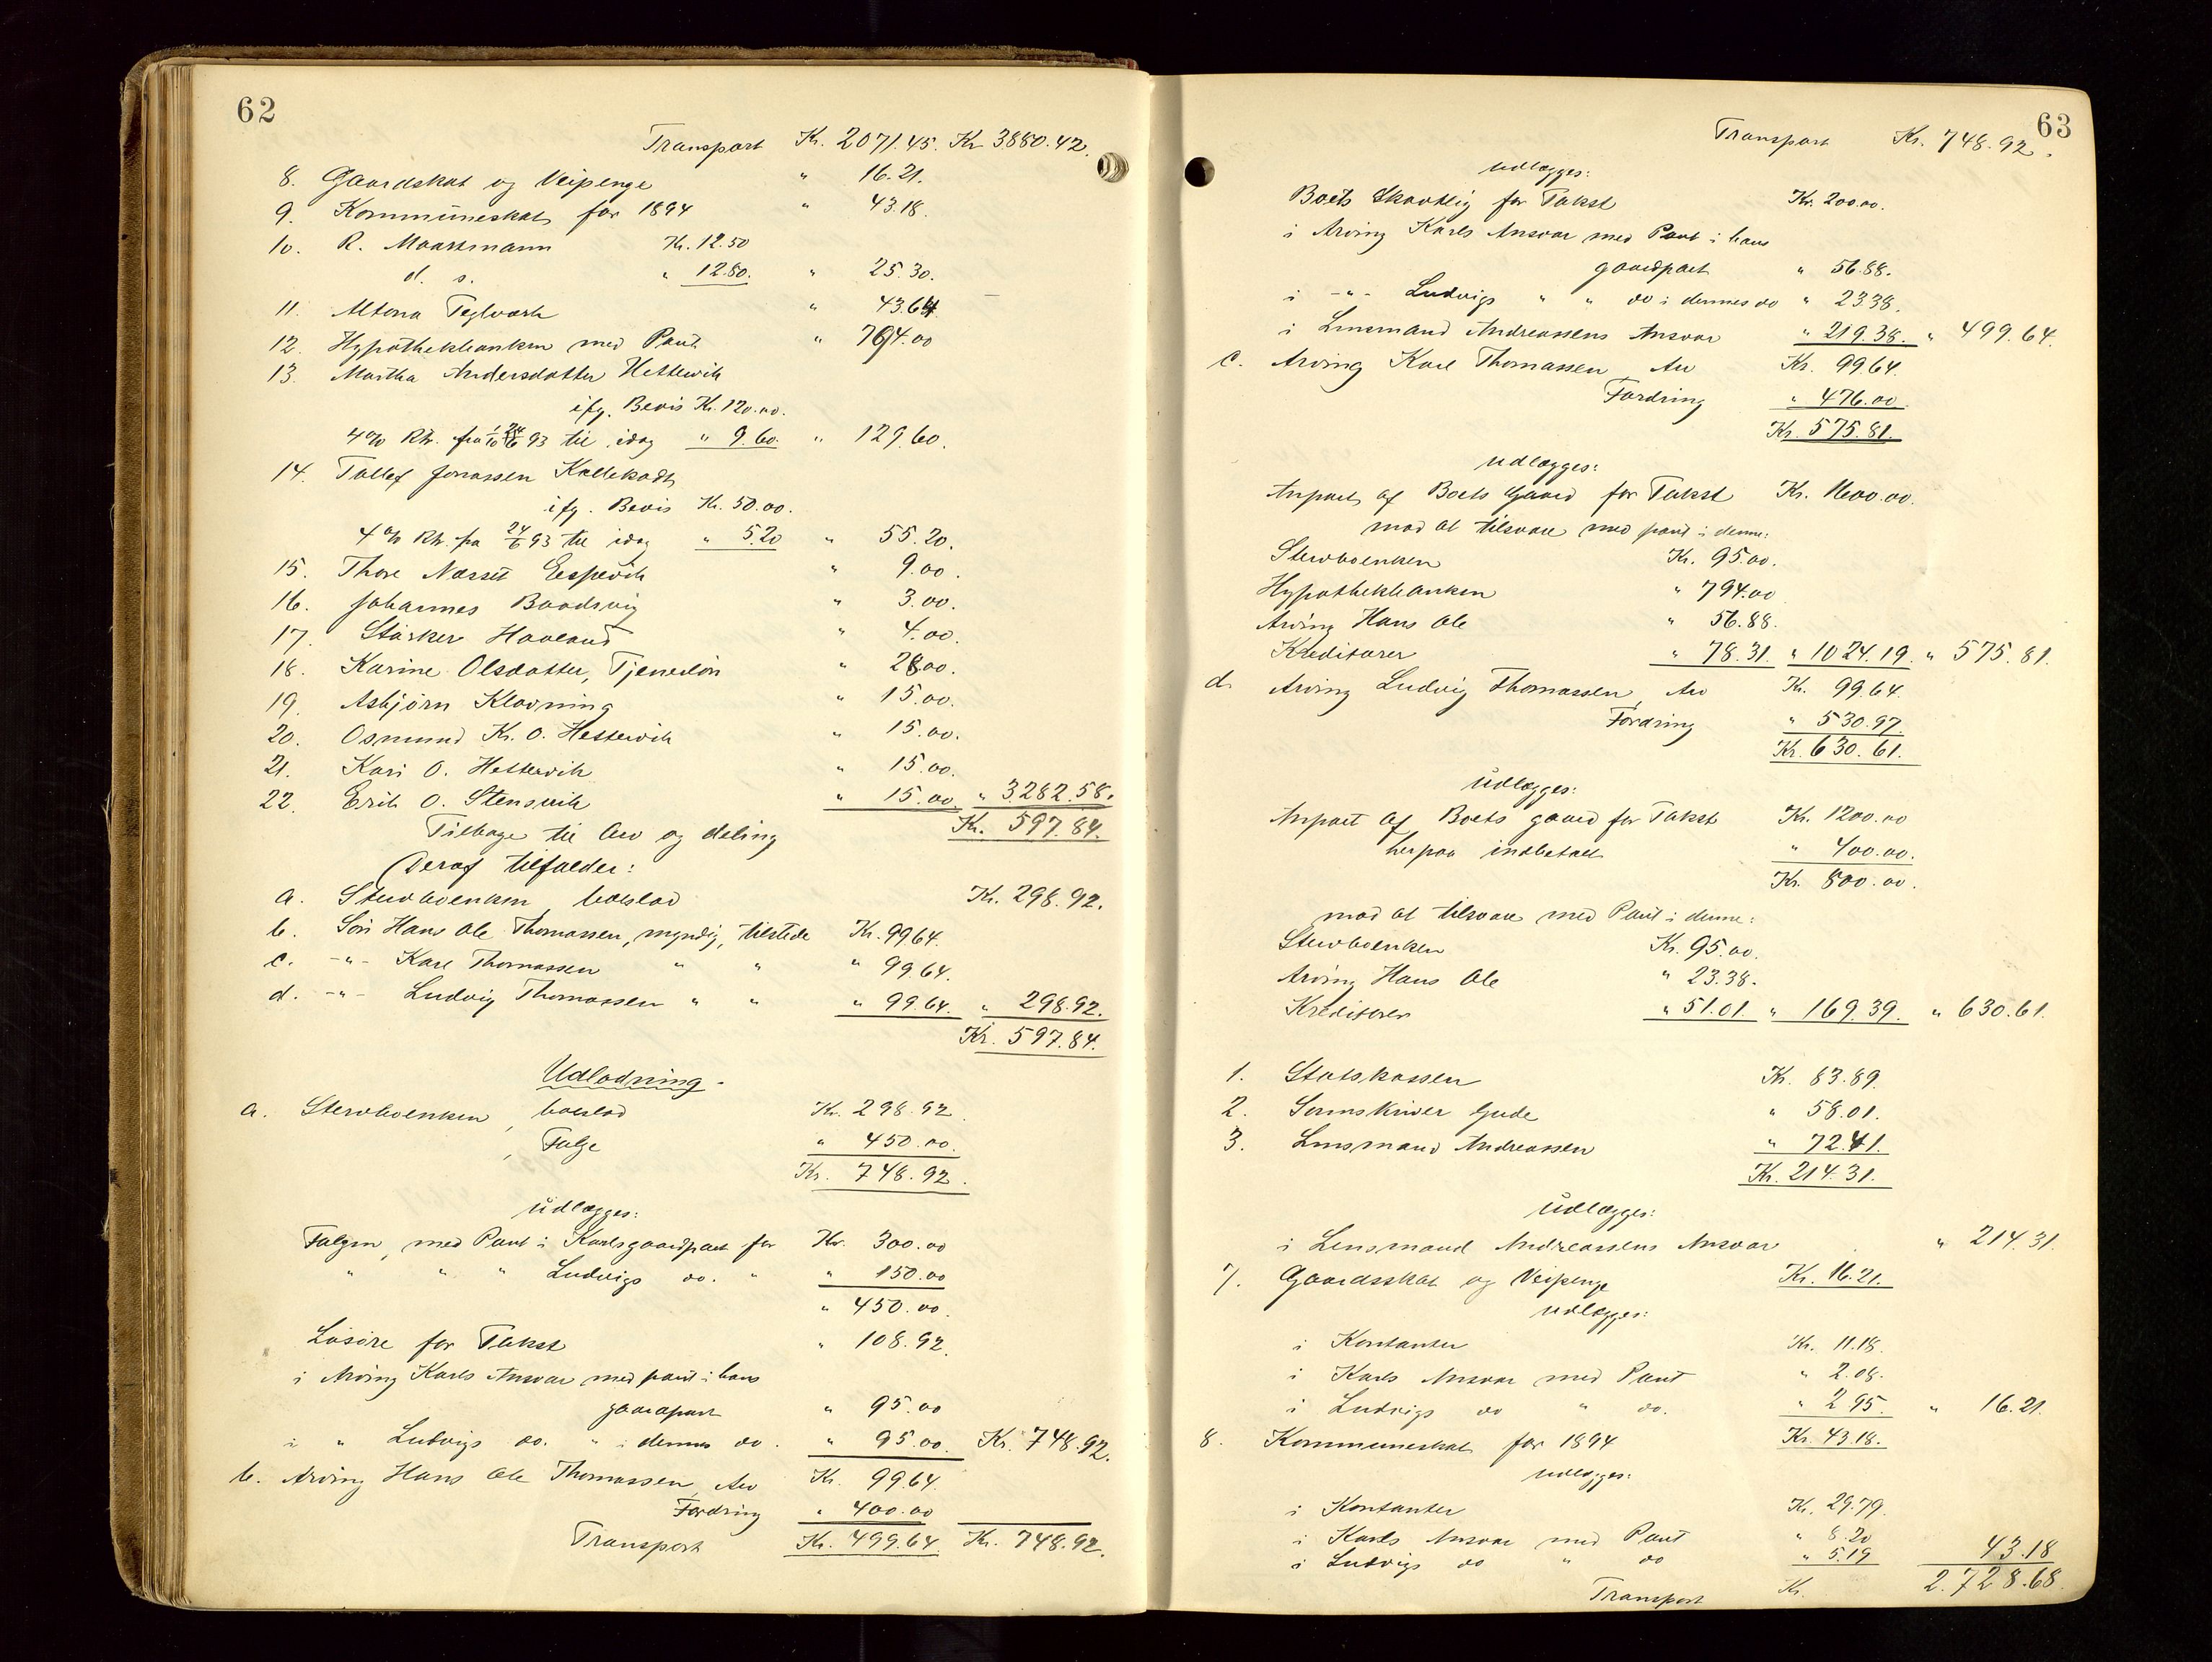 62
Transport Kr. 2071.45. Kr 3880.42.
8. Gaardskat og Veipenge " 16.21.
9. Kommuneskat for 1894 " 43.18.
10. R. Maarsmann Kr. 12.50
d. s. " 12.80. " 25.30.
11. Altona Teglværk " 43.64
12. Hypothekbanken med Pant " 794.00
13. Martha Andersdatter Hettervik
ifg. Bevis Kr. 120.00.
4% Rt. fra 93 til idag " 9.60. " 129.60.
14. Tollef Jonassen
ifg. Bevis Kr. 50.00.
4% Rt. fra 24/6 93 til idag " 5.20 " 55.20.
15. Thore Næsset Espevik " 9.00.
16. Johannes Baadsvig " 3.00.
17. Stærker Haaland " 4.00.
18. Karine Olsdatter, Tjenerløn " 28.00.
19. Asbjørn Klovning " 15.00.
20. Osmund Kr. O. Hettervik " 15.00.
21. Kari O. Hettervik " 15.00.
22. Erik O. Stensvik " 15.00. " 3282.58.
Tilbage til Arv og deling Kr. 597.84.
Deraf tilfalder:
a. Stervboenken boeslod Kr. 298.92.
b. Søn Hans Ole Thomassen, myndig, tilstede Kr. 99.64.
c. -"- Karl Thomassen " " " 99.64.
d. -"- Ludvig Thomassen " " " 99.64. " 298.92.
Kr. 597.84.
Udlodning.
a. Stervboenken, boeslod Kr. 298.92.
, Følge " 450.00.
Kr. 748.92.
udlægges:
Følgen, med Pant i Karls gaardpart for Kr. 300.00
" " " Ludvigs do. " " 150.00
" 450.00.
Løsøre for Takst " 108.92.
i Arving Karls Ansvar med pant i hans
gaardpart " 95.00
i " Ludvigs do. " i dennes do. " 95.00. Kr. 748.92.
b. Arving Hans Ole Thomassen, Arv Kr. 99.64.
Fordring " 400.00
Transport Kr. 499.64 Kr. 748.92.
63
Transport Kr. 748.92.
udlægges:
Boets Skovteig for Takst Kr. 200.00.
i Arving Karls Ansvar med Pant i hans
gaardpart " 56.88.
i -"- Ludvigs " " do i dennes do " 23.38.
i Lensmand Andreassens Ansvar " 219.38. " 499.64.
c. Arving Karl Thomassen, Arv Kr. 99.64.
Fordring " 476.00.
Kr. 575.81.
udlægges:
Anpart af Boets Gaard for Takst Kr. 1600.00.
mod at tilsvare med pant i denne:
Stervboenken Kr. 95.00.
Hypothekbanken " 794.00
Arving Hans Ole " 56.88.
Kreditorer " 78.31. " 1024.19. " 575.81.
d. Arving Ludvig Thomassen, Arv Kr. 99.64.
Fordring " 530.97.
Kr. 630.61.
udlægges:
Anpart af Boets gaard for Takst Kr. 1200.00
herpaa indbetalt " 400.00.
Kr. 800.00.
mod at tilsvare med Pant i denne:
Stervboenken Kr. 95.00.
Arving Hans Ole " 23.38.
Kreditorer " 51.01. " 169.39. " 630.61.
1. Statskassen Kr. 83.89.
2. Sorenskriver Gude " 58.01.
3. Lensmand Andreassen " 72.41.
Kr. 214.31.
udlægges:
i Lensmand Andreassens Ansvar " 214.31.
7. Gaardsskat og Veipenge Kr. 16.21.
udlægges:
i Kontanter Kr. 11.18.
i Karls Ansvar med Pant " 2.08.
i Ludvigs do " do. " 2.95. " 16.21.
8. Kommuneskat for 1894 Kr. 43.18.
udlægges:
i Kontanter Kr. 29.79.
i Karls Ansvar med Pant " 8.20
i Ludvigs do " do " 5.19 43.18
Transport Kr. 2.728.68.